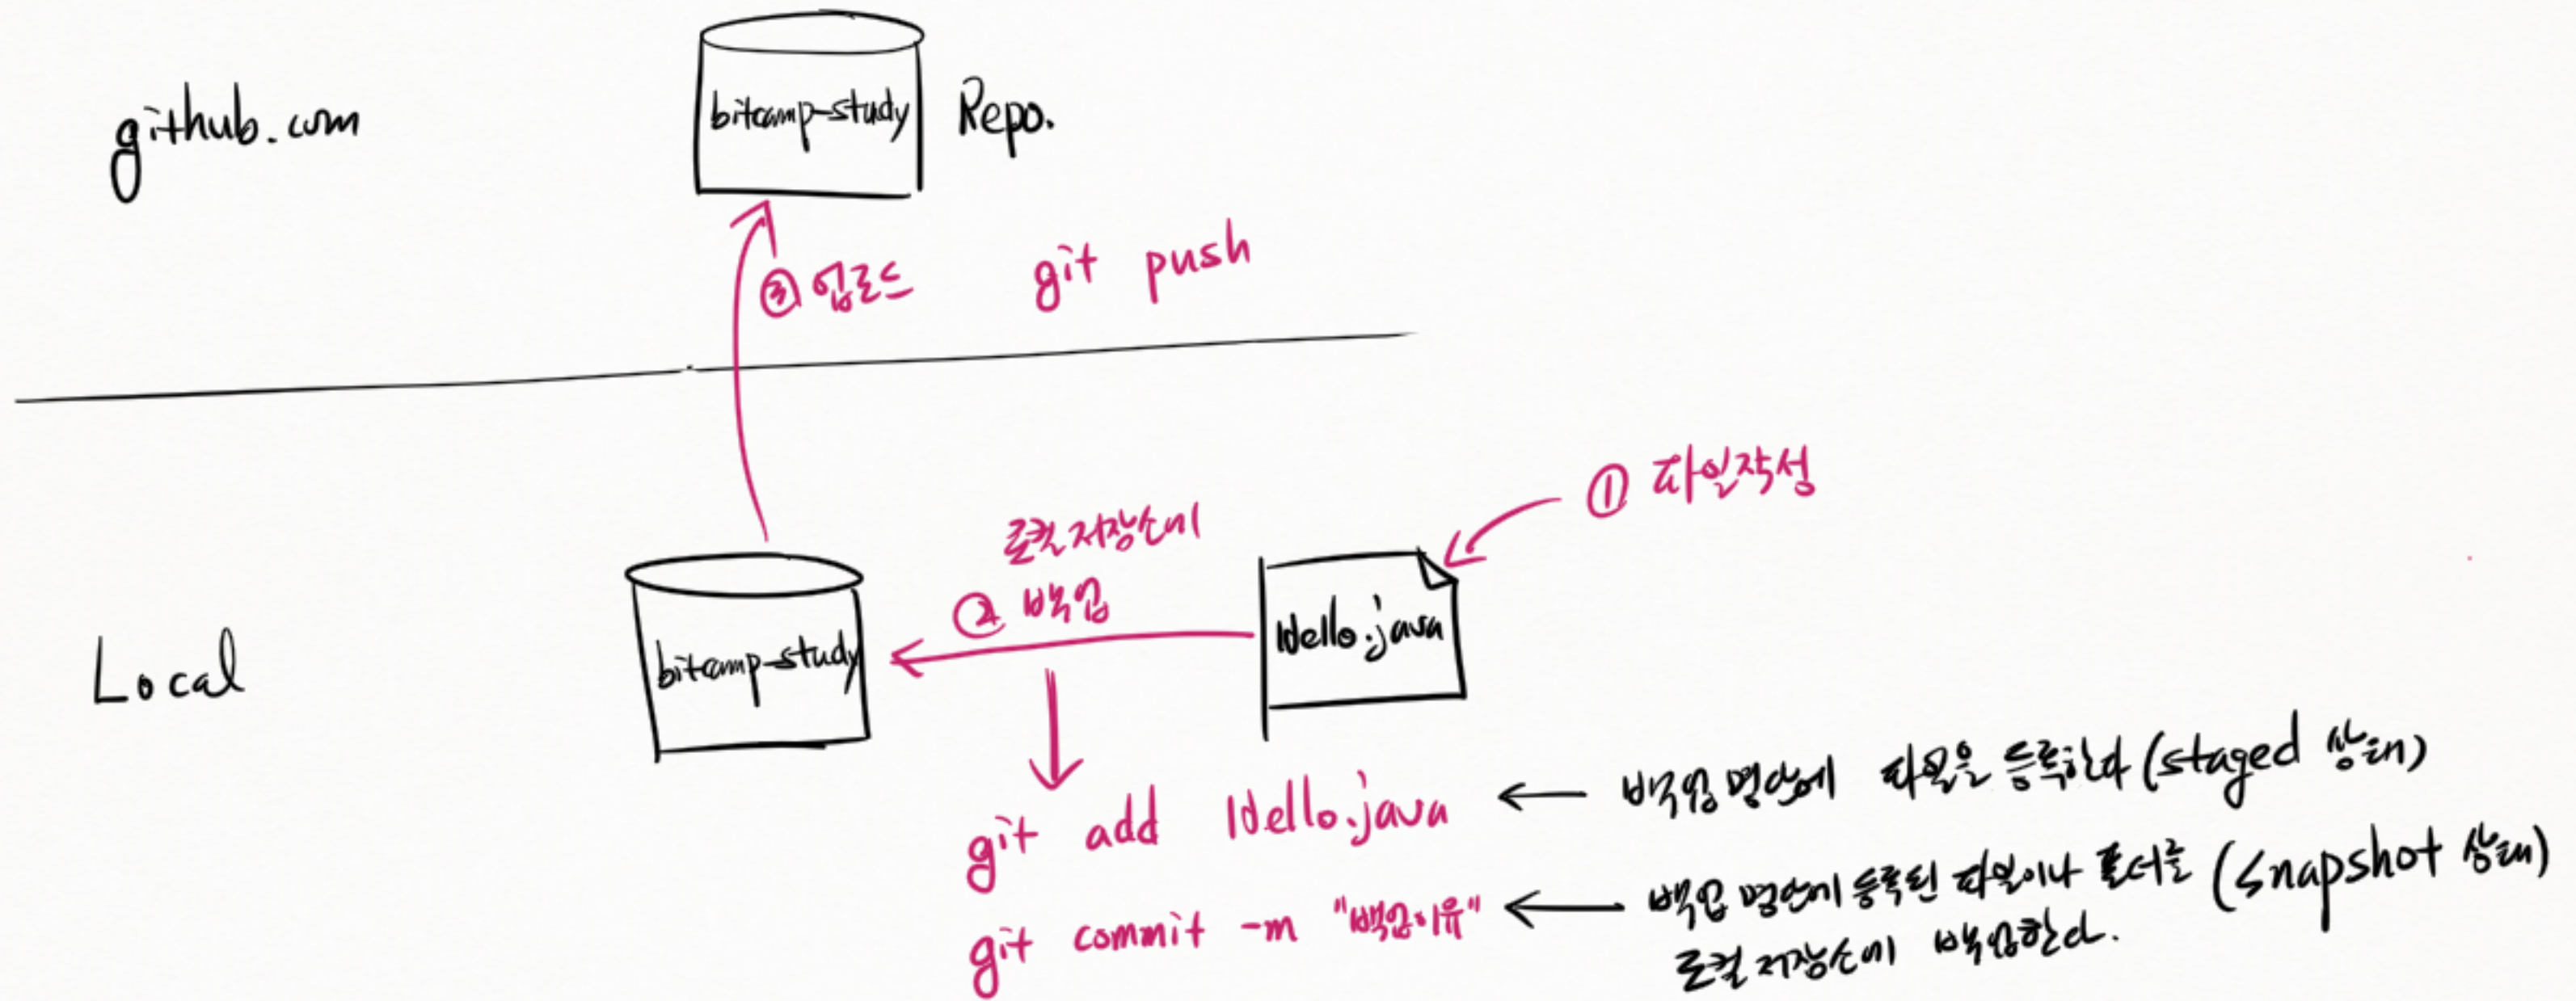 github.com
bitcamp-study
Repo.
③ 업로드
git push
① 파일작성
로컬 저장소에
② 백업
Local
bitcamp-study
Hello.java
git add Hello.java
백업 명단에 파일을 등록한다 (staged 상태)
git commit -m "백업이유"
백업 명단에 등록된 파일이나 폴더를 (snapshot 상태)
로컬 저장소에 백업한다.